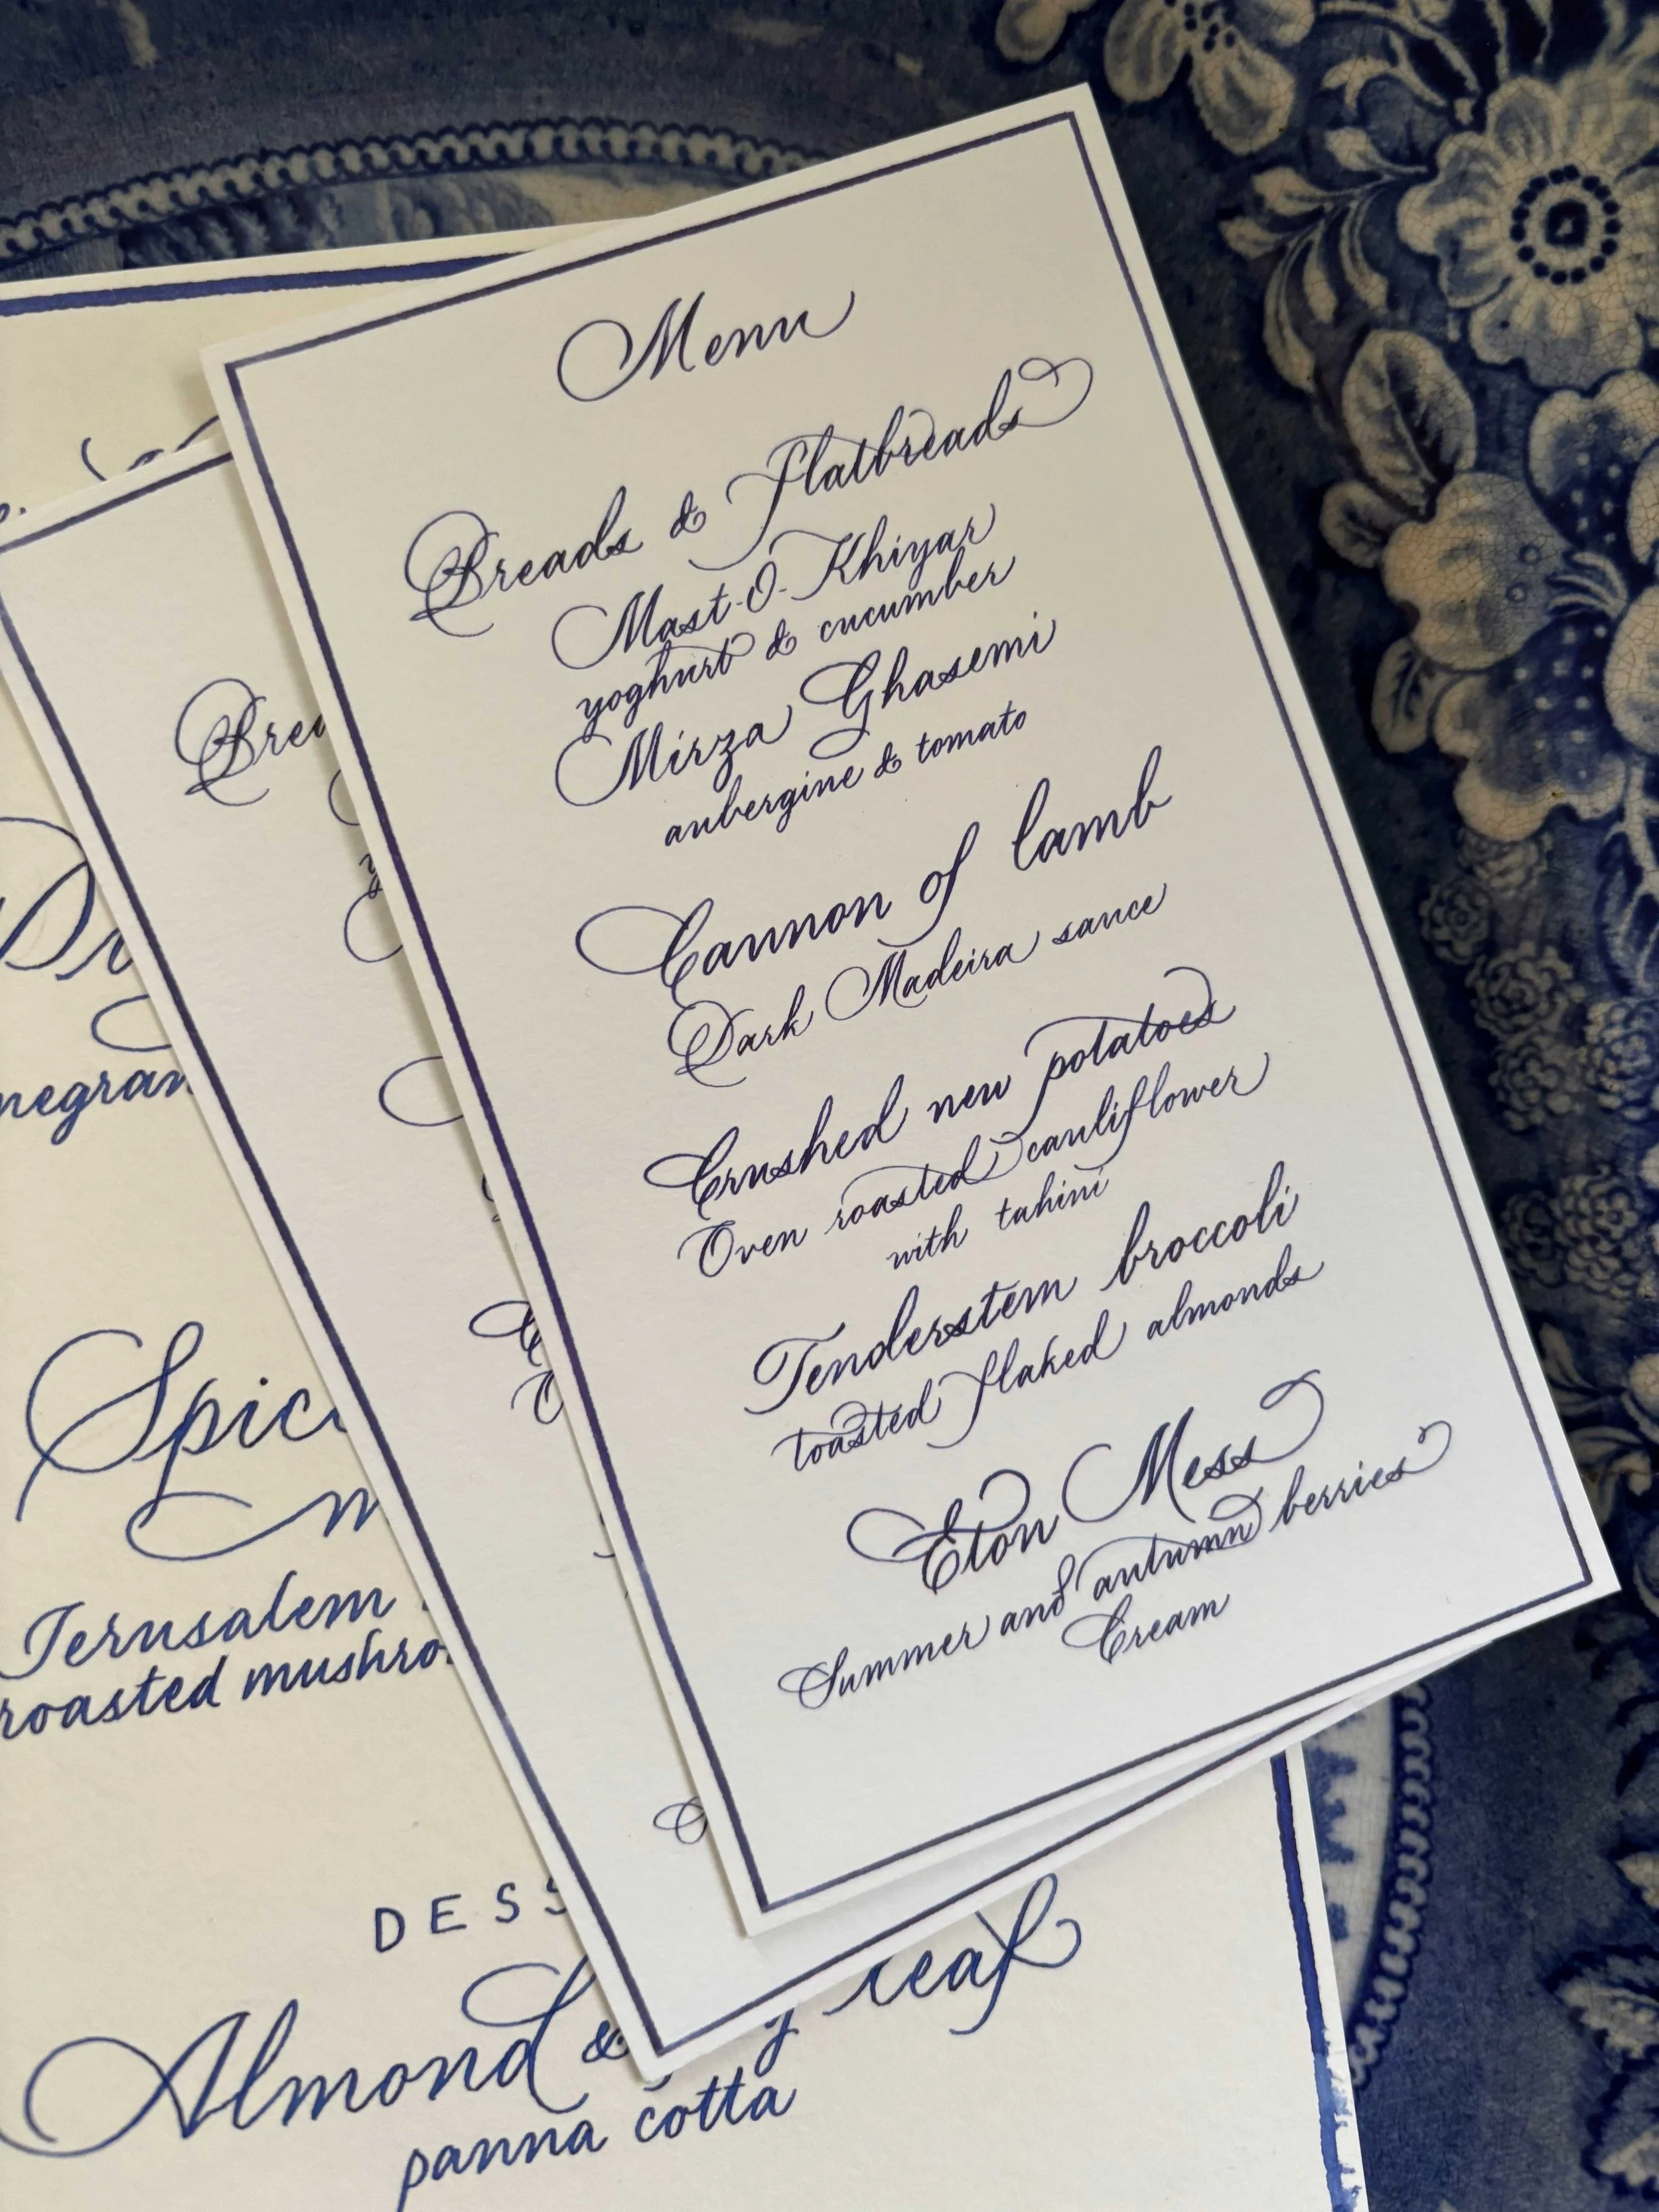 Menu
Breads & Flatbreads
Mast-O-Khiyar
yoghurt & cucumber
Mirza Ghasemi
aubergine & tomato
Cannon of lamb
Dark Madeira sauce
Crushed new potatoes
Oven roasted cauliflower
with tahini
Tenderstem broccoli
toasted flaked almonds
Eton Mess
Summer and autumn berries
Cream
Brea
negran
Spic
Jerusalem
roasted mushro
DESS
Almond & leaf
panna cotta